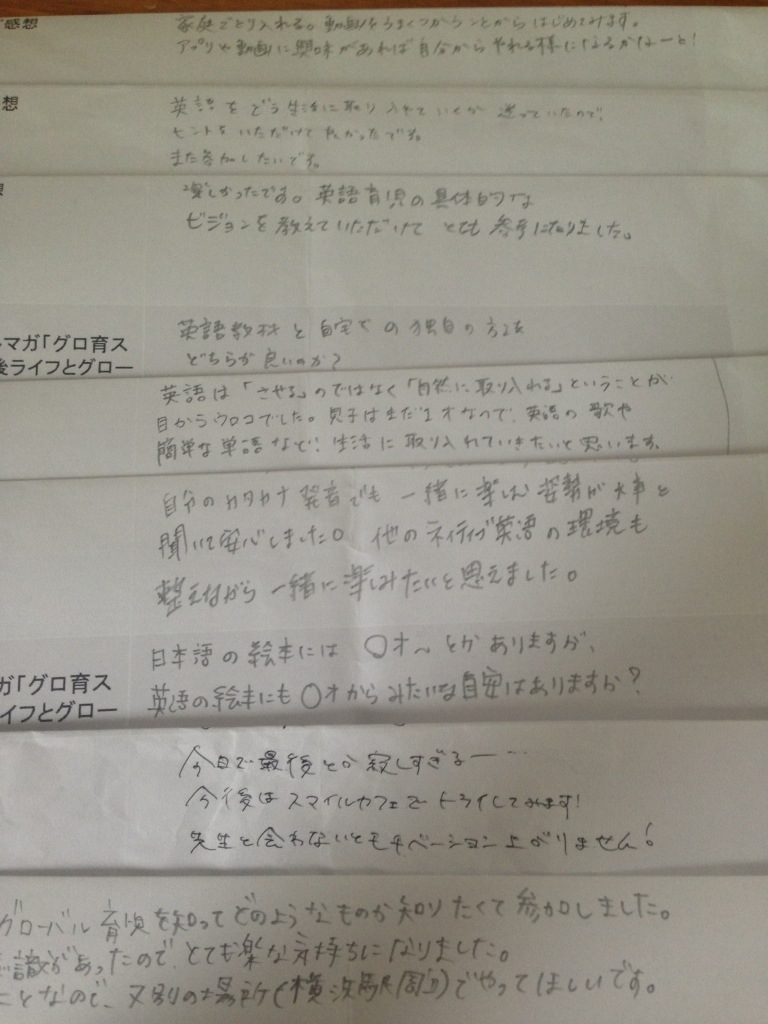 感想
家庭でとり入れる。動画をうまくつかうことからはじめてみます。
アプリや動画に興味があれば自分からやれる様になるかなーと!
想
英語をどう生活に取り入れていくか迷っていたので、
ヒントをいただけてよかったです。
また参加したいです。
想
楽しかったです。英語育児の具体的な
ビジョンを教えていただけてとても参考になりました。
マガ「グロ育ス
後ライフとグロー
英語教材と自宅での独自の方法
どちらが良いのか?
英語は「させる」のではなく「自然に取り入れる」ということが
目からウロコでした。息子はまだ1才なので、英語の歌や
簡単な単語など、生活に取り入れていきたいと思います。
自分のカタカナ発音でも一緒に楽しむ姿勢が大事と
聞いて安心しました。他のネイティブ英語の環境も
整えながら一緒に楽しみたいと思えました。
ガ「グロ育ス
イフとグロー
日本語の絵本には〇才〜とかありますが、
英語の絵本にも〇才からみたいな目安はありますか?
今日で最後とか寂しすぎるー…
今後はスマイルカフェでトライしてみます!
先生と会わないとモチベーション上がりません!
グローバル育児を知ってどのようなものか知りたくて参加しました。
識があったので、とても楽な気持ちになりました。
ことなので、又別の場所(横浜駅周辺)でやってほしいです。